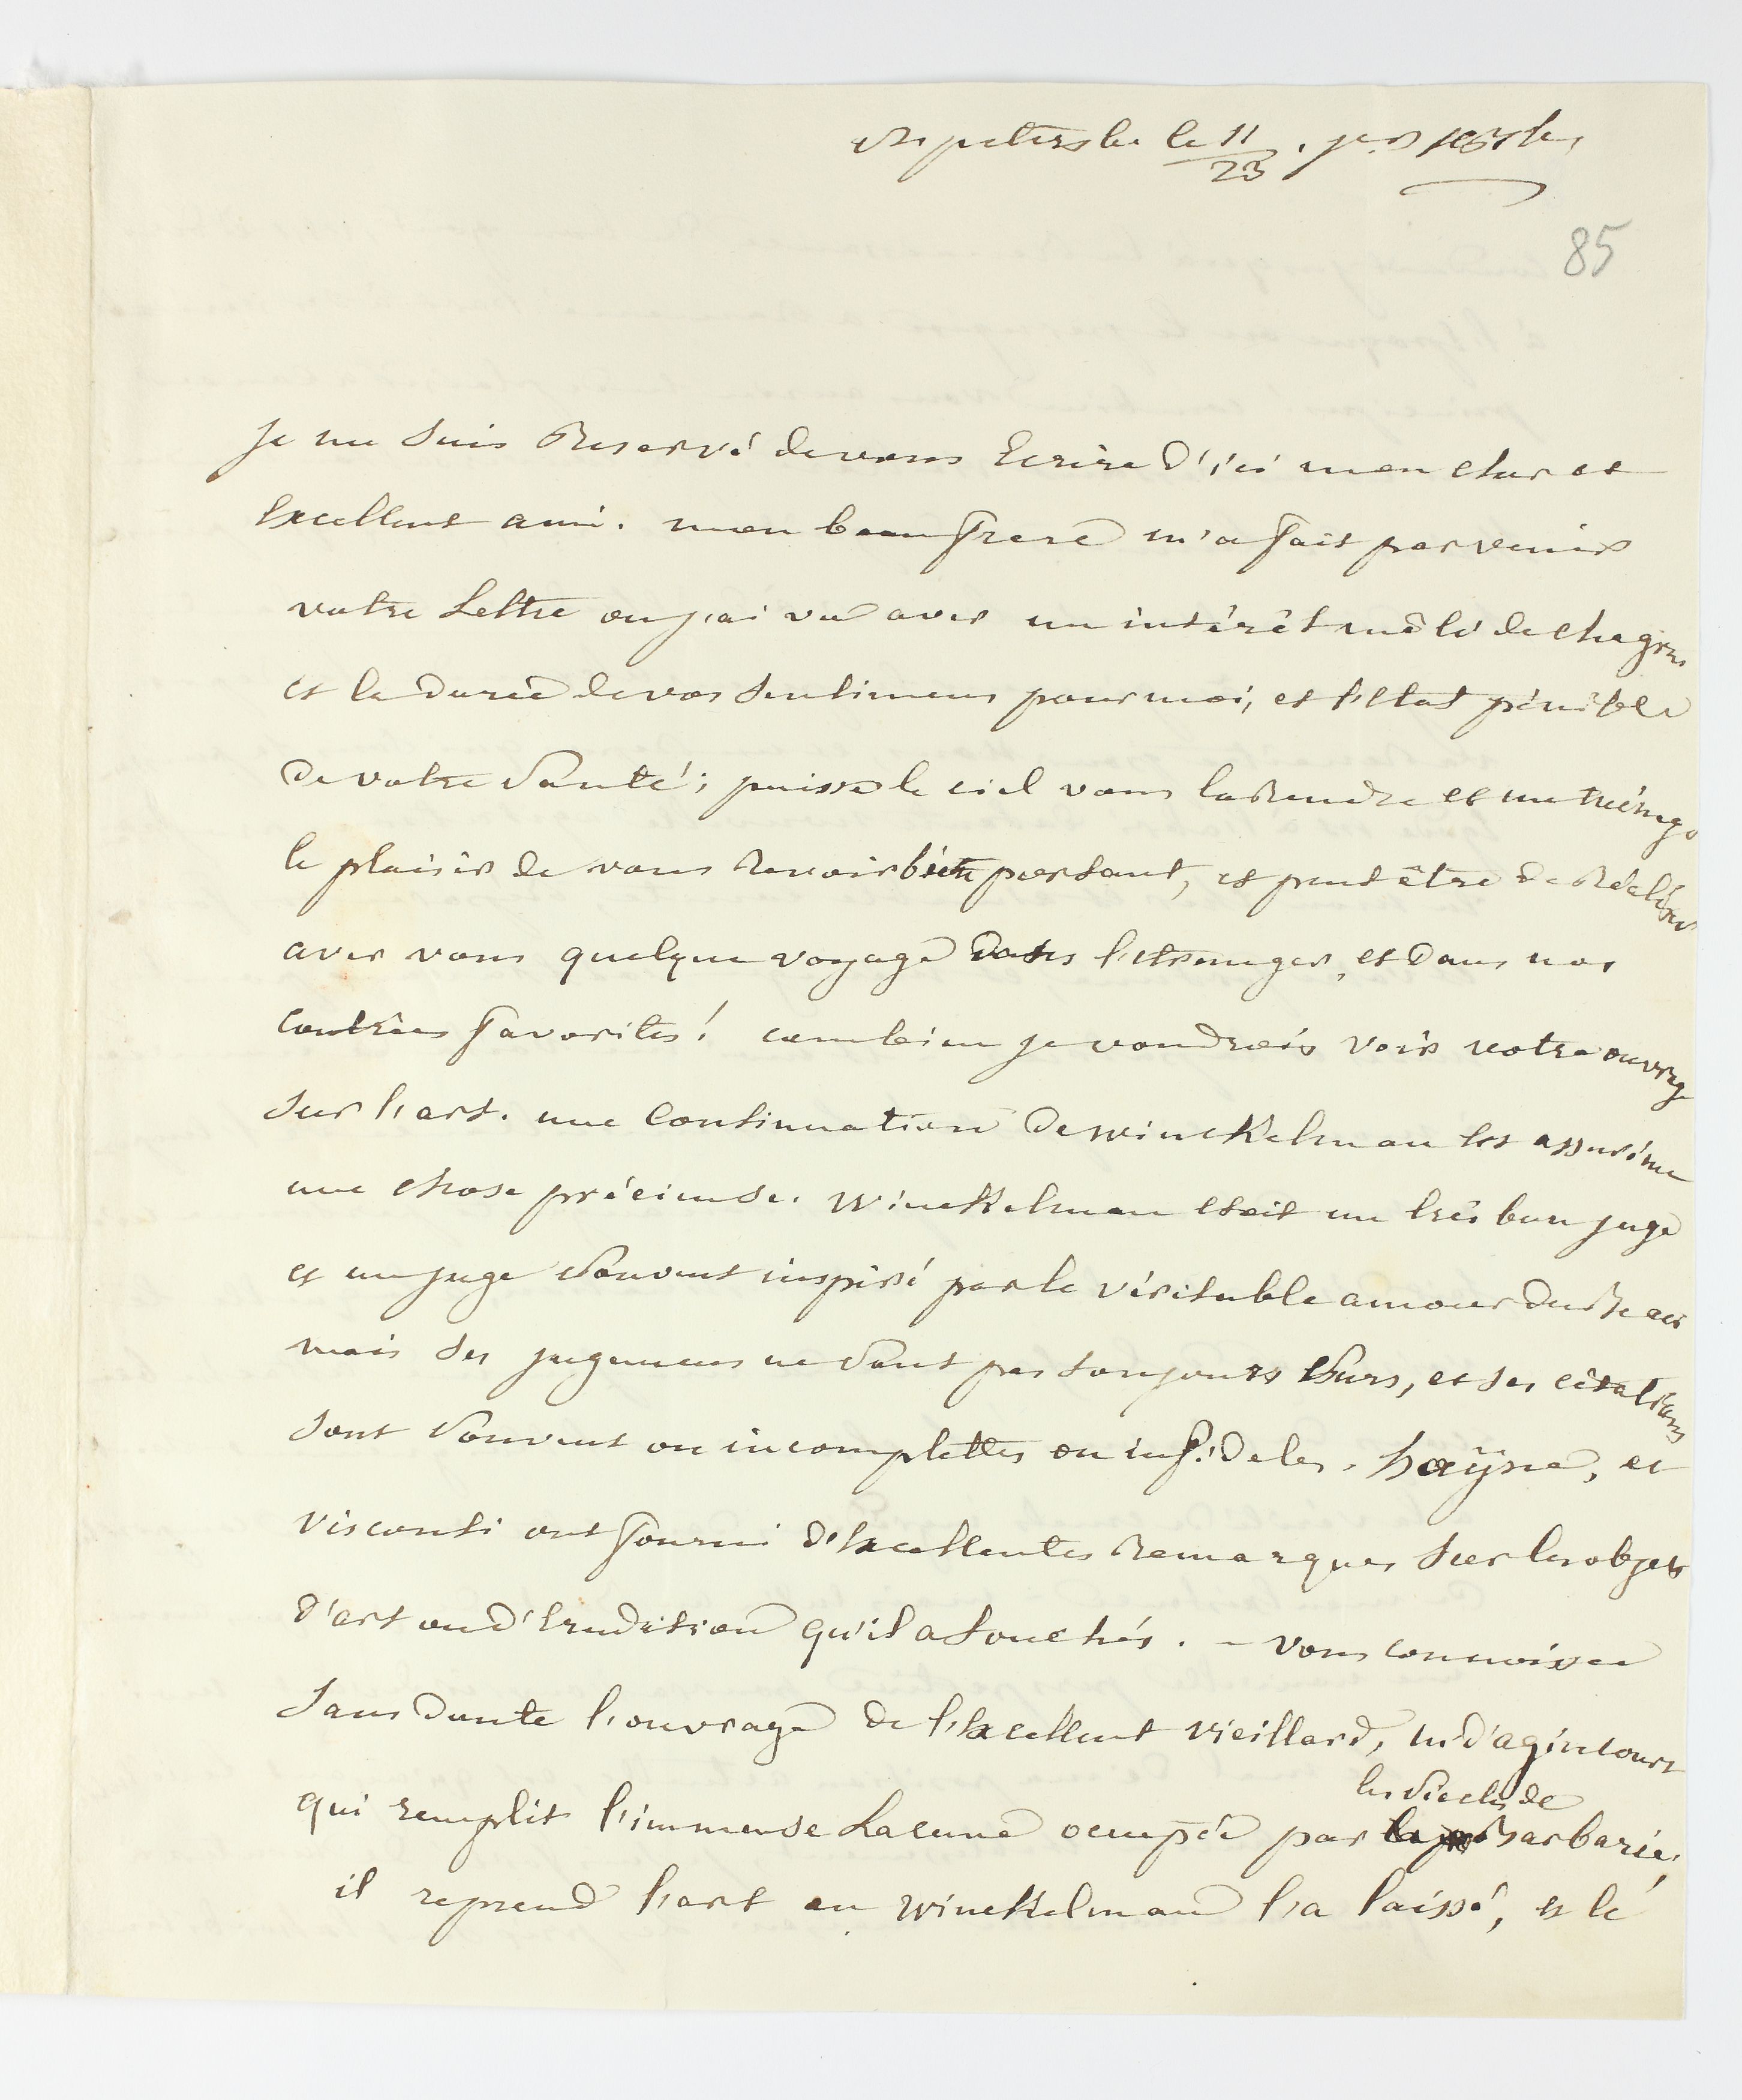 le 11/23
85
je me suis Reservé de vous Ecrire d'ici mon cher et
Excellent ami. mon beau frere m'a fait parvenir
votre Lettre ou j'ai vu avec un intérêt mêlé de chagrin
et la durée de vos sentimens pour moi, et l'Etat pénible
de votre Santé; puisse le ciel vous la Rendre et me ménager
le plaisir de vous Revoir bien portant, et peut être de Réaliser
avec vous quelque voyage dans l'etranger, et dans nos
contrées favorites! combien je voudrais voir votre ouvrage
sur l'art. une Continuation de winckelman Est assurém
une chose précieuse. Winckelman etoit un très bon juge
et un juge Souvent inspiré par le véritable amour du Beau
mais ses jugemens ne Sont pas toujours Surs, et ses citations
sont Souvent ou incomplettes ou infideles. hayne, et
visconti ont fourni d'Excellentes Remarques sur les objets
d'art ou d'Erudition qu'il a touchés. - vous connoissez
sans Doute l'ouvrage de l'Excellent vieillard, m. d'agincourt
qui remplit l'immense Lacune occupée par les Siecles de Barbarie;
il reprend l'art ou Winckelman l'a laissé, et le